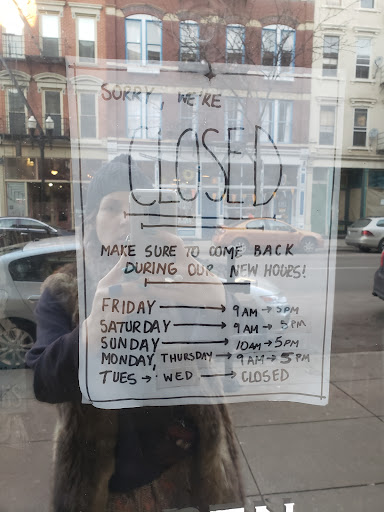 SORRY, WE'RE
CLOSED
MAKE SURE TO COME BACK
DURING OUR NEW HOURS!
FRIDAY → 9AM → 5PM
SATURDAY → 9AM → 5PM
SUNDAY → 10AM → 5PM
MONDAY, THURSDAY → 9AM → 5PM
TUES → WED → CLOSED